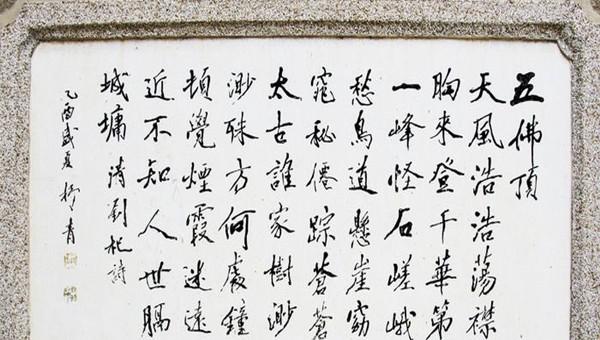 五佛頂
天風浩浩蕩襟
胸來登千華第
一峰怪石嵯峨
愁鳥道懸崖窈
窕秘僊踪蒼蒼
太古誰家樹渺
渺殊方何處鐘
頓覺煙霞迷遠
近不知人世隔
城墉 清劉杞詩
乙酉盛夏 青